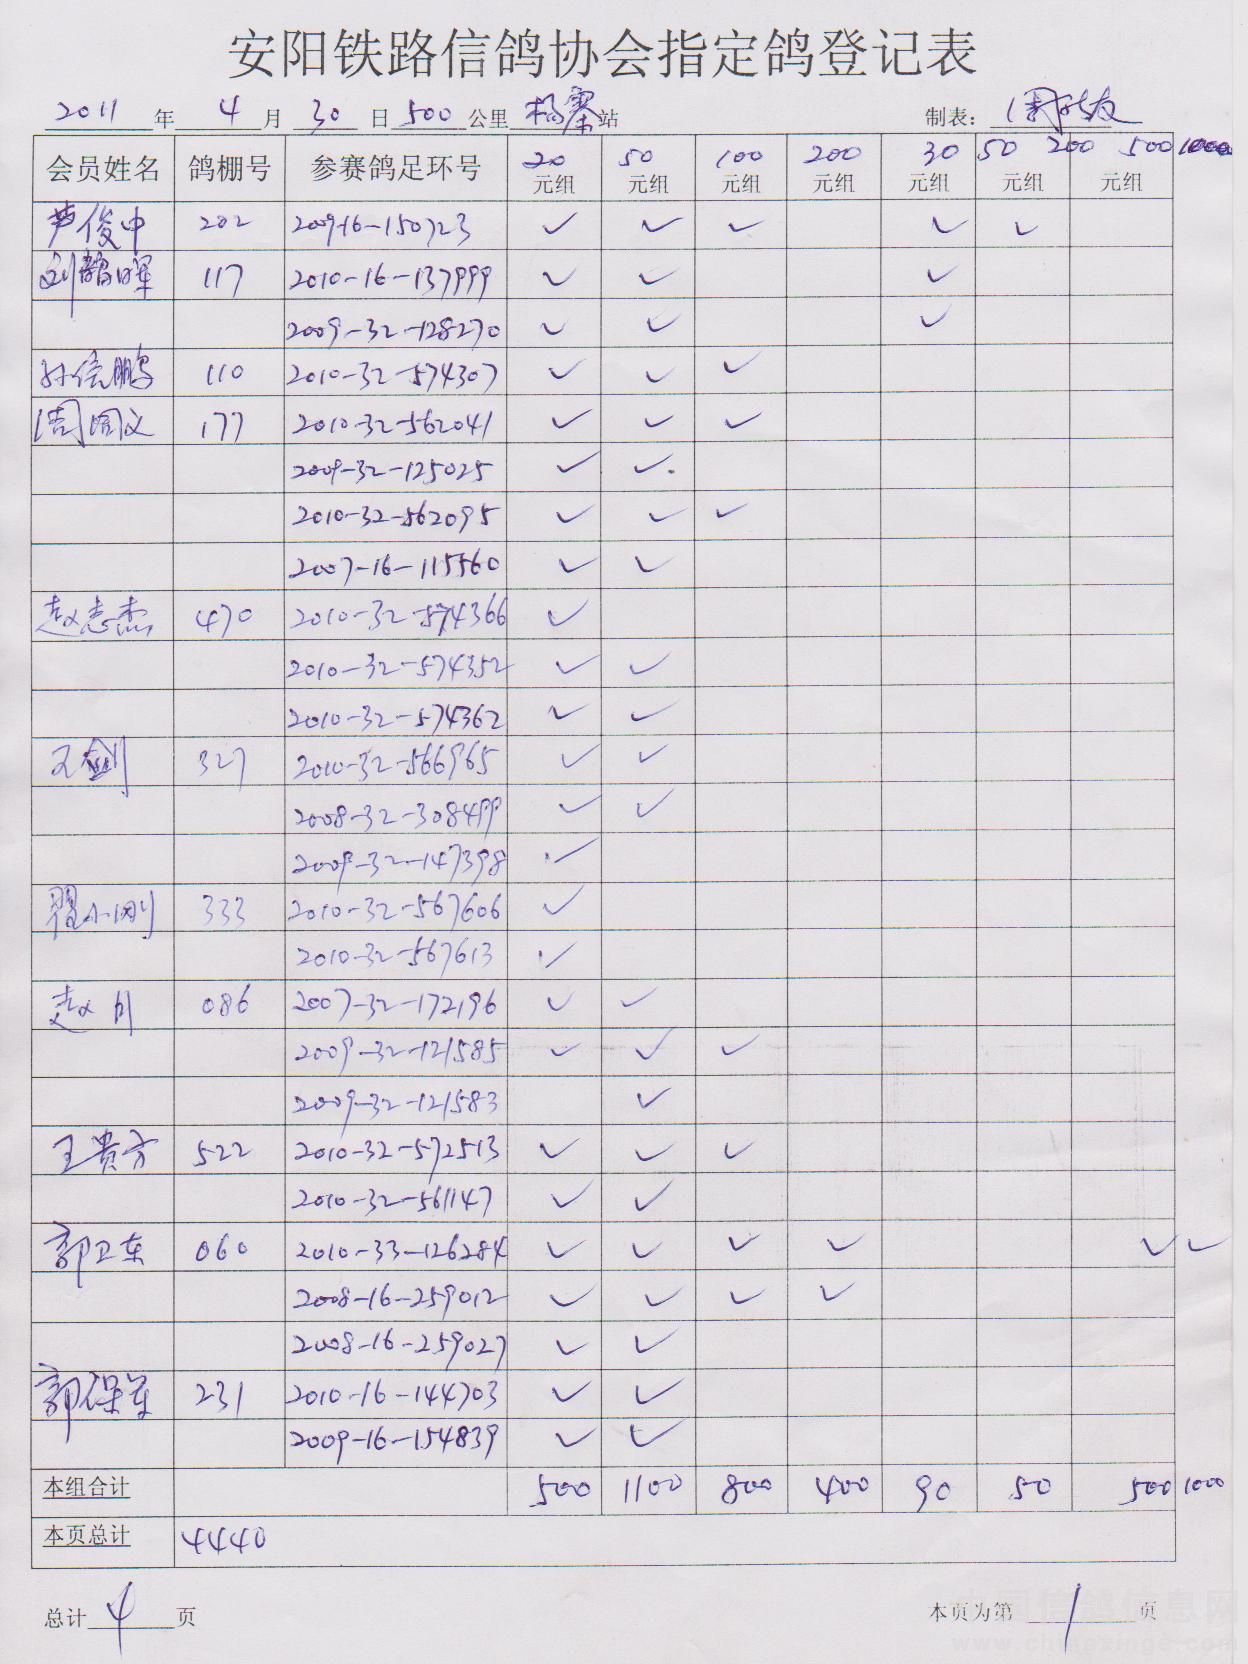 安阳铁路信鸽协会指定鸽登记表
2011 年 4 月 30 日 500 公里 杨寨 站 制表：
会员姓名 鸽棚号 参赛鸽足环号 20元组 50元组 100元组 200元组 30元组 50元组 200 500元组 1000
芦俊中 202 2009-16-150723 ✓ ✓ ✓ ✓ ✓
刘韶晖 117 2010-16-137999 ✓ ✓ ✓
2009-32-128270 ✓ ✓ ✓
孙信鹏 110 2010-32-574307 ✓ ✓ ✓
周国义 177 2010-32-562041 ✓ ✓ ✓
2009-32-125025 ✓ ✓
2010-32-562095 ✓ ✓ ✓
2007-16-115560 ✓ ✓
赵志杰 470 2010-32-574366 ✓
2010-32-574352 ✓ ✓
2010-32-574362 ✓ ✓
王剑 327 2010-32-566965 ✓ ✓
2008-32-308499 ✓ ✓
2009-32-147398 ✓
翟小刚 333 2010-32-567606 ✓
2010-32-567613 ✓
赵 086 2007-32-172196 ✓ ✓
2009-32-121585 ✓ ✓ ✓
2009-32-121583 ✓
王贵方 522 2010-32-572513 ✓ ✓ ✓
2010-32-561147 ✓ ✓
郭卫东 060 2010-33-126284 ✓ ✓ ✓ ✓ ✓ ✓
2008-16-259012 ✓ ✓ ✓ ✓
2008-16-259027 ✓ ✓
郭保军 231 2010-16-144703 ✓ ✓
2009-16-154839 ✓ ✓
本组合计 500 1100 800 400 90 50 500 1000
本页总计 4440
总计 4 页 本页为第 1 页